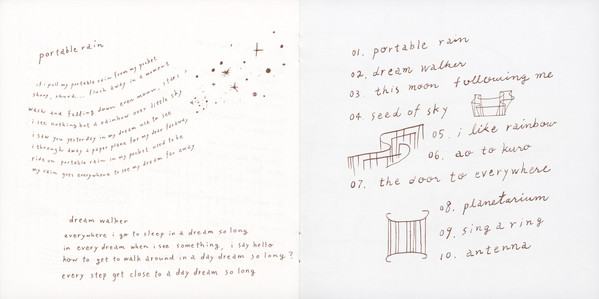 portable rain
if i pull my portable rain from my pocket
sharp, sound... flash away in a moment
wash and falling down even moon, stars,
i see nothing but a rainbow over little sky
i saw you yesterday in my dream use to see
i through away a paper plane for my dear faraway
ride on portable rain in my pocket used to be
my rain goes everywhere to see my dream far away
dream walker
everywhere i go to sleep in a dream so long
in every dream when i see something, i say hello
how to get to walk around in a day dream so long?
every step get close to a day dream so long
01. portable rain
02. dream walker
03. this moon following me
04. seed of sky
05. i like rainbow
06. ao to kuro
07. the door to everywhere
08. planetarium
09. sing a ring
10. antenna